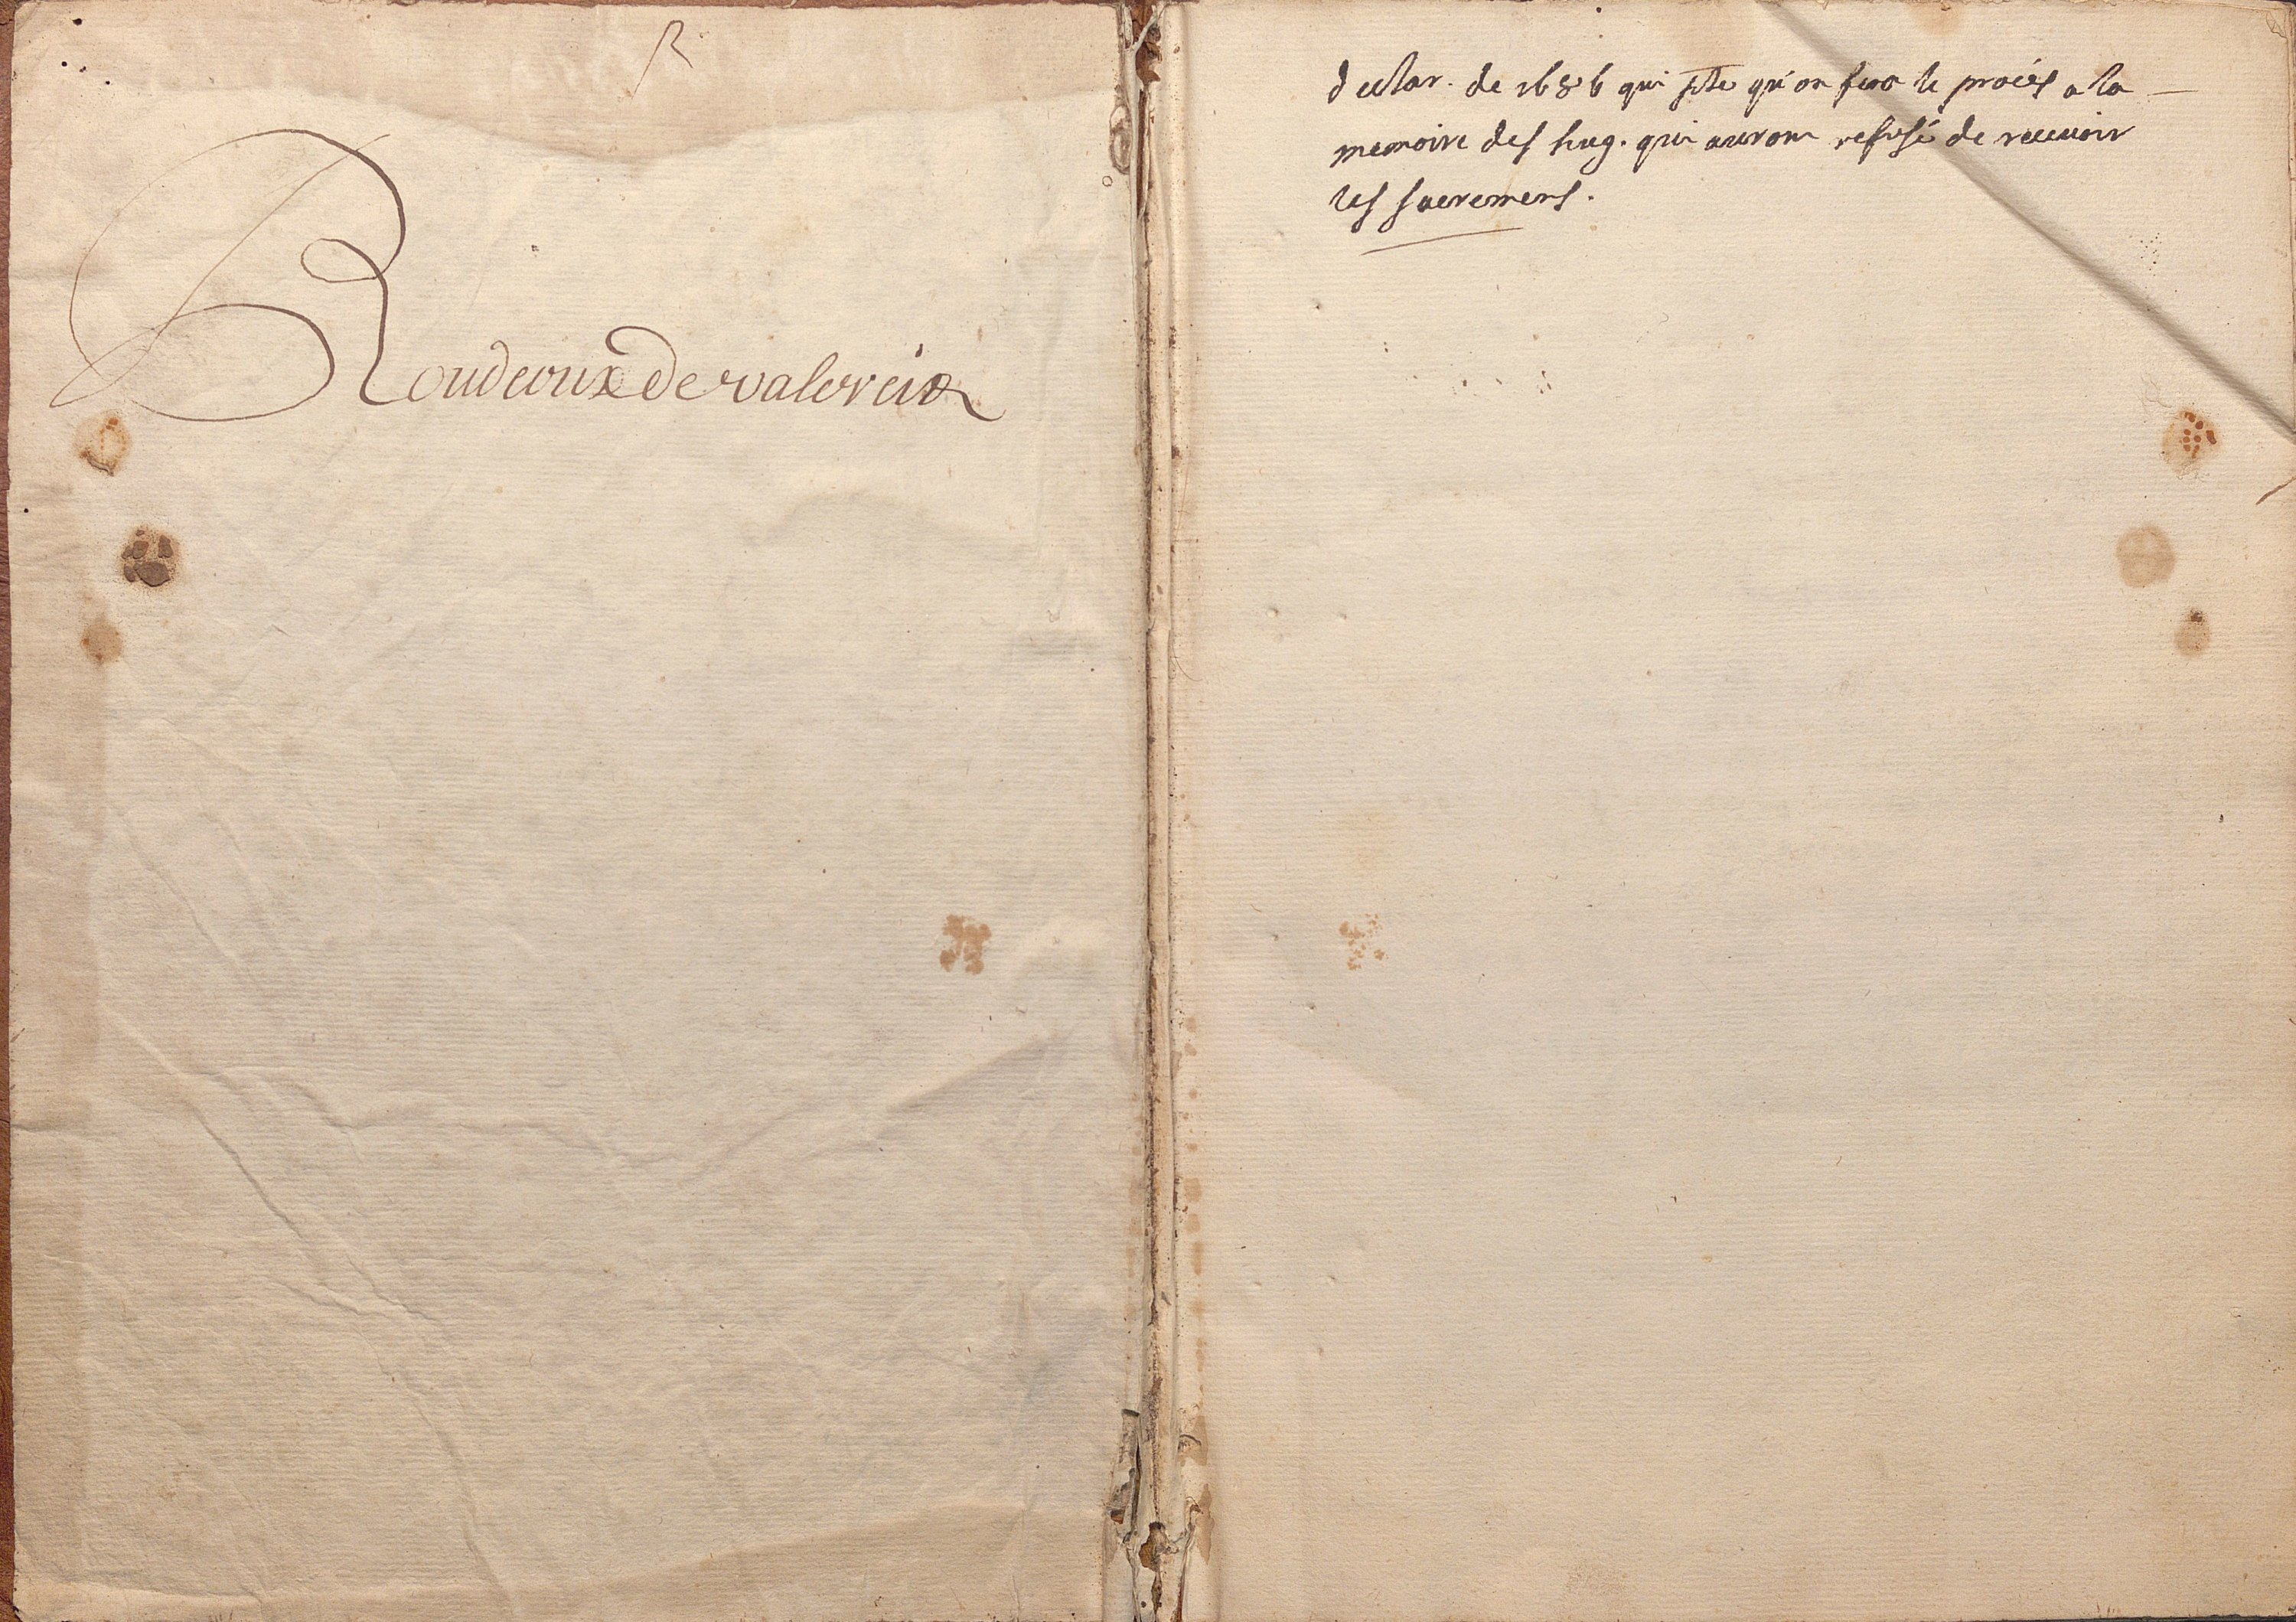 R
Roudeoux de valereix
declar. de 1686 qui pte qu'on fera le procés a la
memoire des hug. qui auront refusé de recevoir
les sacremens.